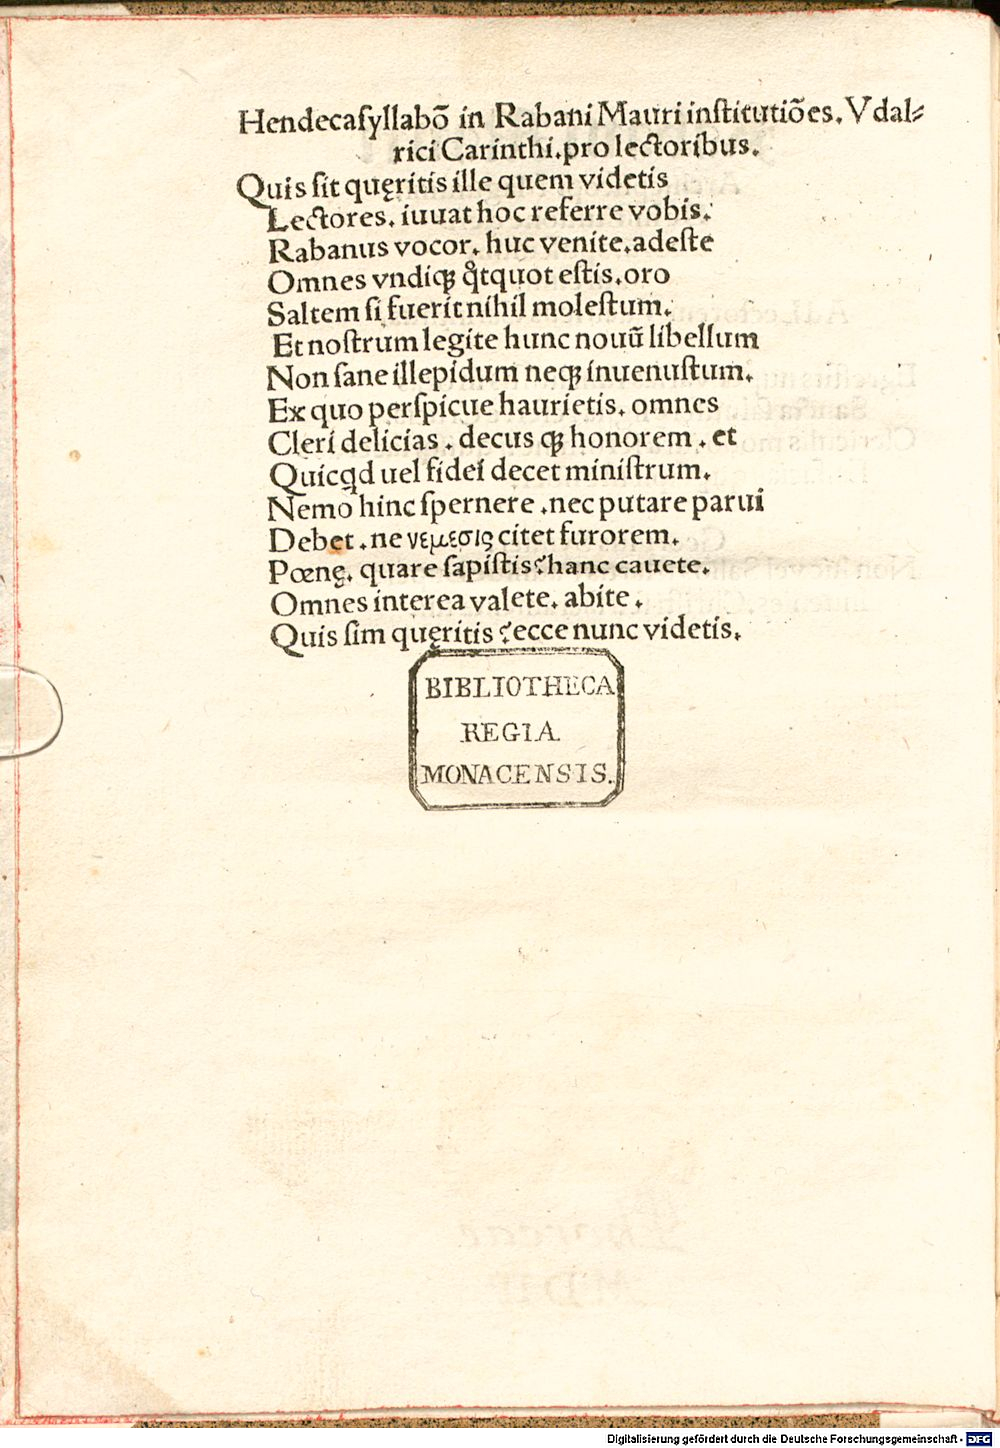 Hendecaſyllabō in Rabani Mauri inſtitutiōes. Vdal⸗
rici Carinthi. pro lectoribus.
Quis ſit quęritis ille quem videtis
Lectores. iuuat hoc referre vobis.
Rabanus vocor. huc venite. adeſte
Omnes vndiqꝫ qͦtquot eſtis. oro
Saltem ſi fuerit nihil moleſtum.
Et noſtrum legite hunc nouū libellum
Non ſane illepidum neqꝫ inuenuſtum.
Ex quo perſpicue haurietis. omnes
Cleri delicias. decus qꝫ honorem. et
Quicqd uel fidei decet miniſtrum.
Nemo hinc ſpernere. nec putare parui
Debet. ne νεμεσις citet furorem.
Pœnę. quare ſapiſtis? hanc cauete.
Omnes interea valete. abite.
Quis ſim quęritis? ecce nunc videtis.
BIBLIOTHECA
REGIA
MONACENSIS.
Digitalisierung gefördert durch die Deutsche Forschungsgemeinschaft - DFG